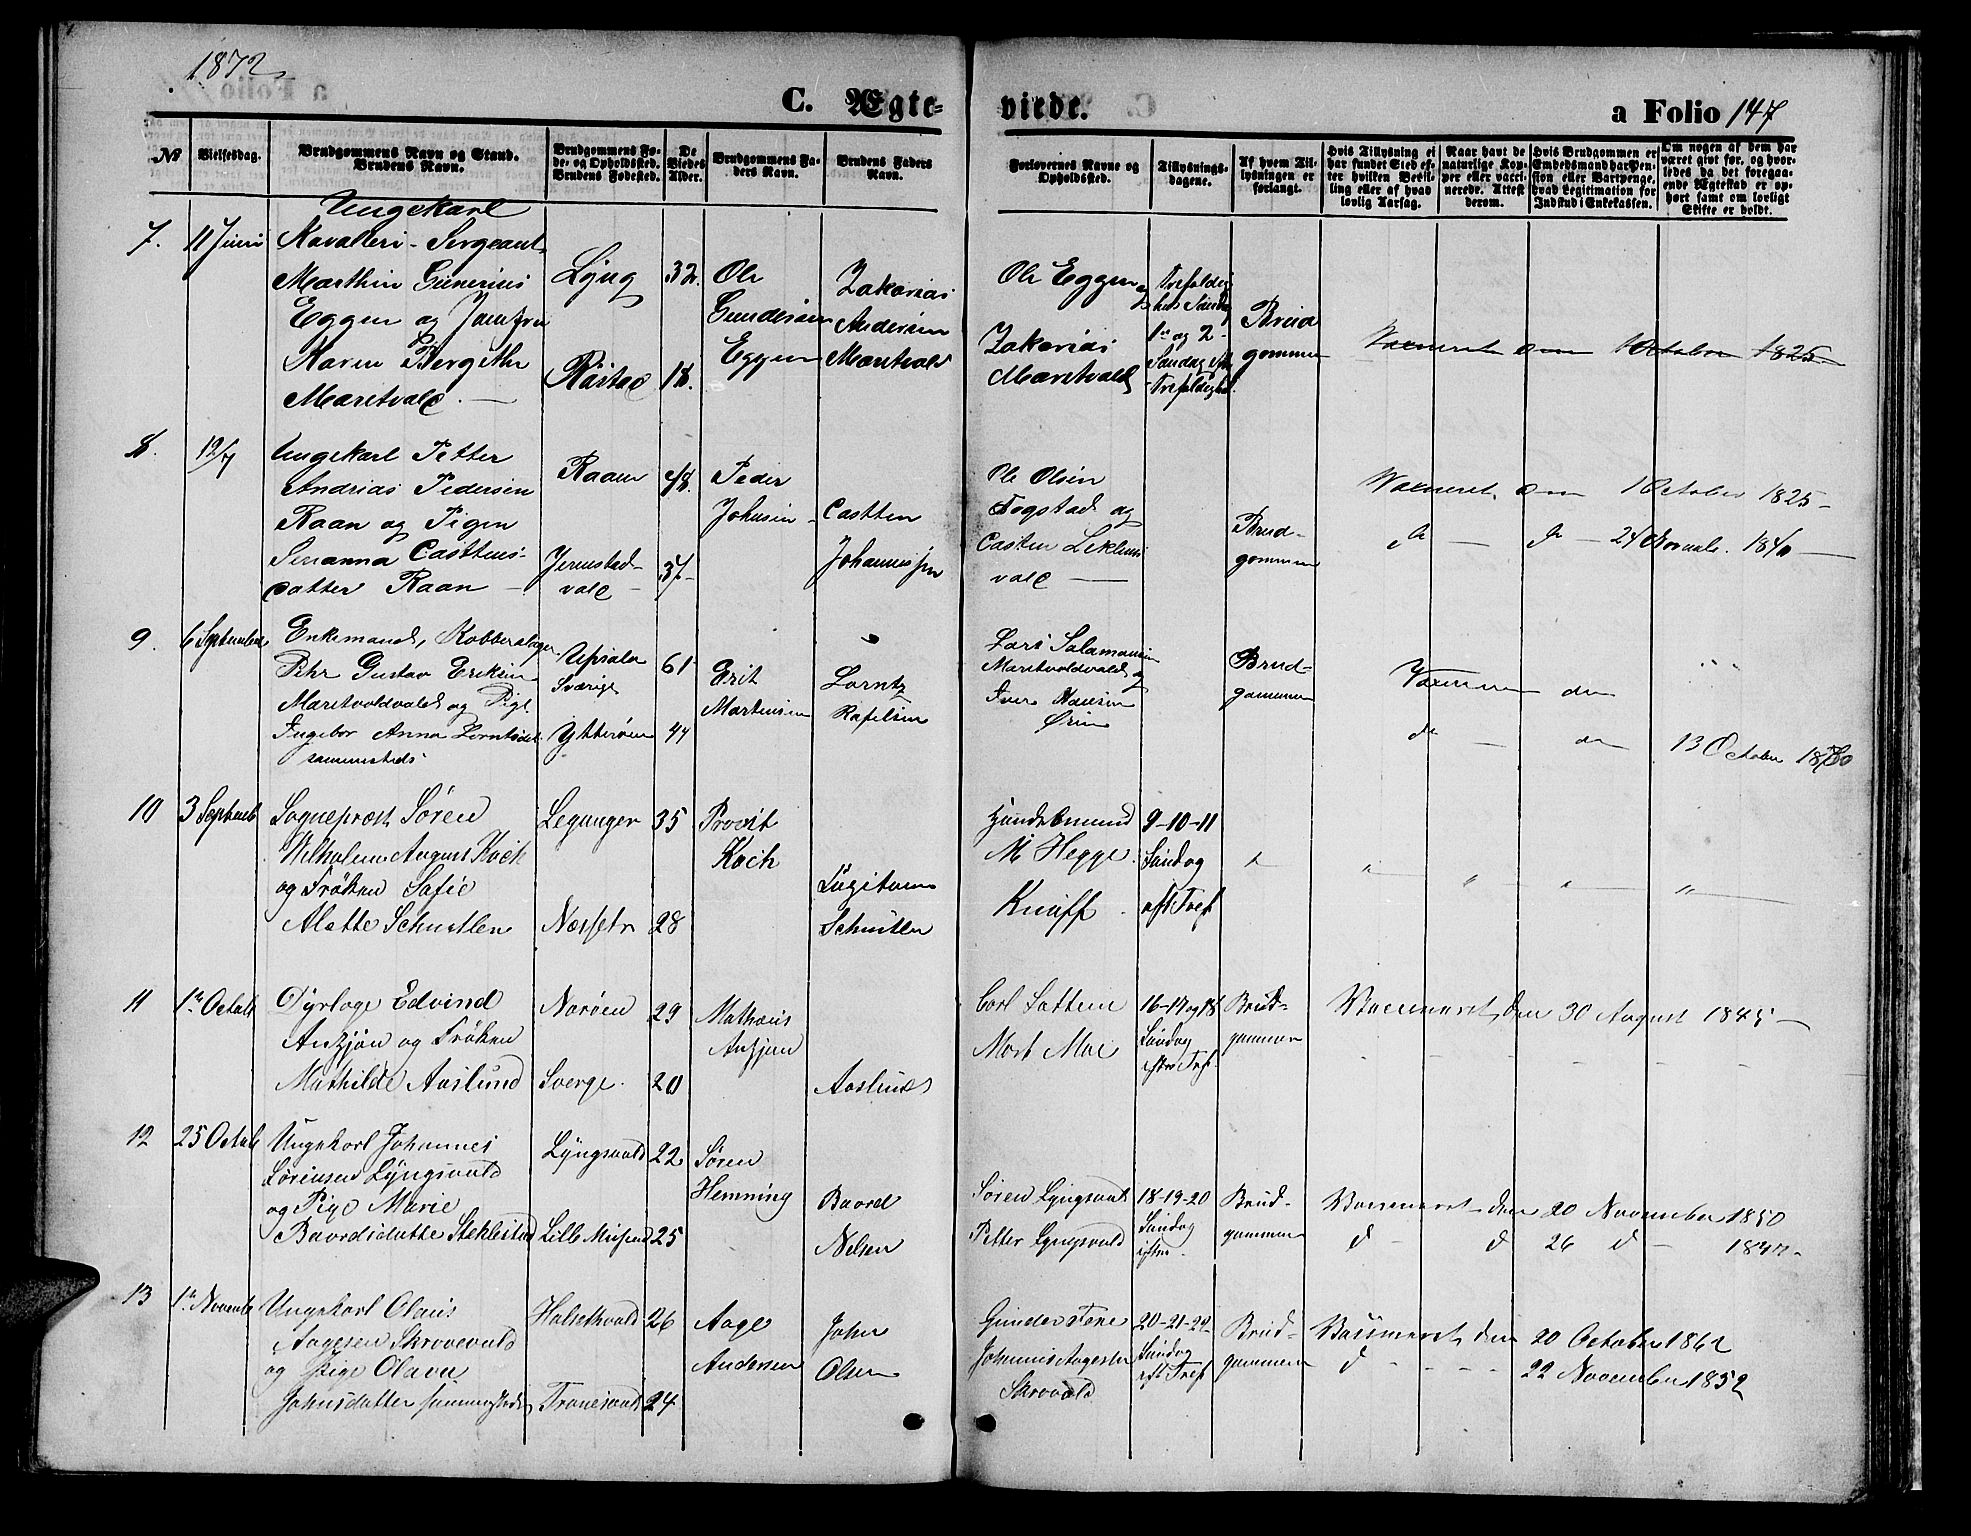 1872
C. Ægte-
viede.
a Folio 147
№
Vielsesdag.
Brudgommens Navn og Stand.
Brudens Navn.
Brudgommens Fø-
de- og Opholdssted.
Brudens Fødested.
De
Viedes
Alder.
Brudgommens Fa-
ders Navn.
Brudens Faders
Navn.
Forlovernes Navne og
Opholdssted.
Tillysnings-
dagene.
Af hvem Til-
lysningen er
forlangt.
Hvis Tillysning ei
har fundet Sted ef-
ter hvilken Bevil-
ling eller af hvad
lovlig Aarsag.
Naar havt de
naturlige Kop-
per eller vacci-
nerede. Attest
derom.
Hvis Brudgommen er
Embedsmand har Pen-
sion eller Vartpenge,
hvad Legitimation for
Indskud i Enkekassen.
Om nogen af dem har
været givt før, og hvor-
ledes da det foregaa-
ende Ægteskab er op-
hørt samt om lovligt
Skifte er holdt.
7. 11 Juni
Ungekarl
Kavalleri-Sergeant
Marthin Gunerius
Eggen og Jomfru
Karen Bergithe
Maritvald
Lyng
Råstad
32.
18.
Ole
Gundersen
Eggen
Zakarias
Andersen
Maritvald
Ole Eggen og
Zakarias
Maritvald
Trefoldig
hets Søndag
1ste og 2-
Søndag eft
Trefoldighet
Brud
gommen
October 1825
8. 12/7
Ungekarl Petter
Andrias Pedersen
Raan og Pigen
Castens-
datter Raan
Raan
vald
48.
37-
Peder
Johnsen
Castten
Johannessen
Ole Olsen
Fogstad og
Casten
vald
Brud-
gommen
den 1 October 1825
24 Novemb. 1840
9. 6 September
Enkemand, Kobberslager
Pehr Gustav Eriksen
Maritvoldvald og Pige
Ingebor Anna
sammesteds
Upsala
Sverige
Ytterøen
61
44
Erik
Martensen
Lorntz
Rafelsen
Lars Salamonsen
Maritvoldvald og
Iver Hansen
Ørin
Brud-
gommen
den
do den 13 October
10 3 Septemb
Sogneprest Søren
Wilhelm August Koch
og Frøken Sofie
Alette Schustlen
Leganger
Nesset
35
28
Provst
Koch
Schustlen
M Hegge
Knuff
9-10-11
Søndag
eft Tref
11 1te Octob
Dyrlæge Edvind
Anzjøn og Frøken
Mathilde Aaslund
Narøen
Sverge
29
20
Matheus
Anzjøn
Aaslund
Carl Sattem
Mort Moe
16-17 og 18
Søndag
efter Tref
Brud-
gommen
Vaccineret den 30 August 1845
12 25 Octob
Ungekarl Johannes
Sørensen Lyngsvald
og Pige Marie
Baardsdatte Steklestad
Lyngsvald
Lille
22
25
Søren
Hemning
Baard
Nelsen
Søren Lyngsvald
Petter Lyngsvald
18-19-20
Søndag
efter
Brud-
gommen
Vaccineret den 20 November 1850
d - d 26 d - 1847
13 1te Novemb
Ungekarl Olaus
Aagesen Skrovevald
og Pige Olava
Johnsdatter sammesteds
Halsethvald
Tronesvald
26
24
Aage
Andersen
John
Olsen
Gunder Tone
Johannis Aagesen
Skrovald
20-21-22
Søndag
eft Tref
Brud-
gommen
Vaccineret den 20 October 1862
d 22 November 1852